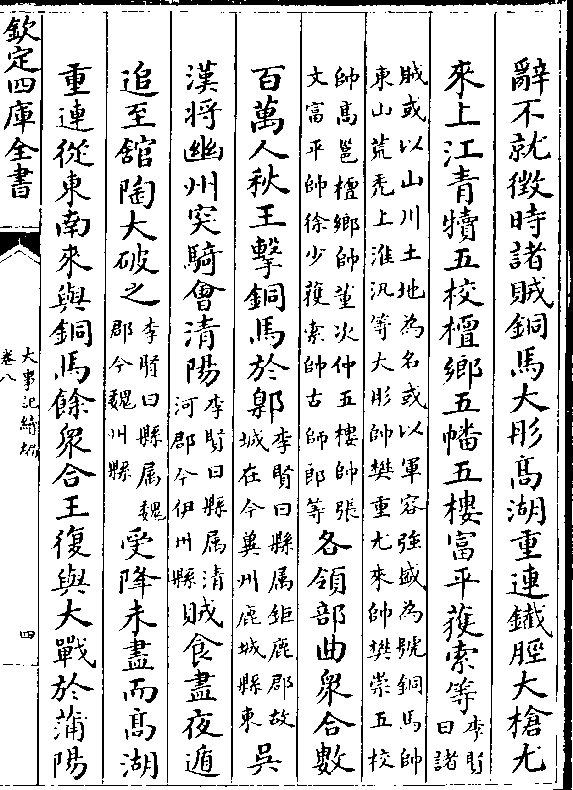 辭不就徵時諸賊銅馬大彤高湖重連鐵脛大槍尤
來上江青犢五校檀鄉五幡五樓富平獲索等李賢曰諸
賊或以山川土地為名或以軍容強盛為號銅馬帥
東山荒禿上淮況等大彤帥樊重尤來帥樊崇五校
帥高邕檀鄉帥董次仲五樓帥張
文富平帥徐少獲索帥古師郎等各領部曲衆合數
百萬人秋王擊銅馬於鄡李賢曰縣屬鉅鹿郡故
城在今冀州鹿城縣東吳
漢將幽州突騎會清陽李賢曰縣屬清
河郡今伊州縣賊食盡夜遁
追至舘陶大破之李賢曰縣屬魏
郡今魏州縣受降未盡而高湖
重連從東南來與銅馬餘衆合王復與大戰於蒲陽
欽定四庫全書
大事記續編
卷八
四